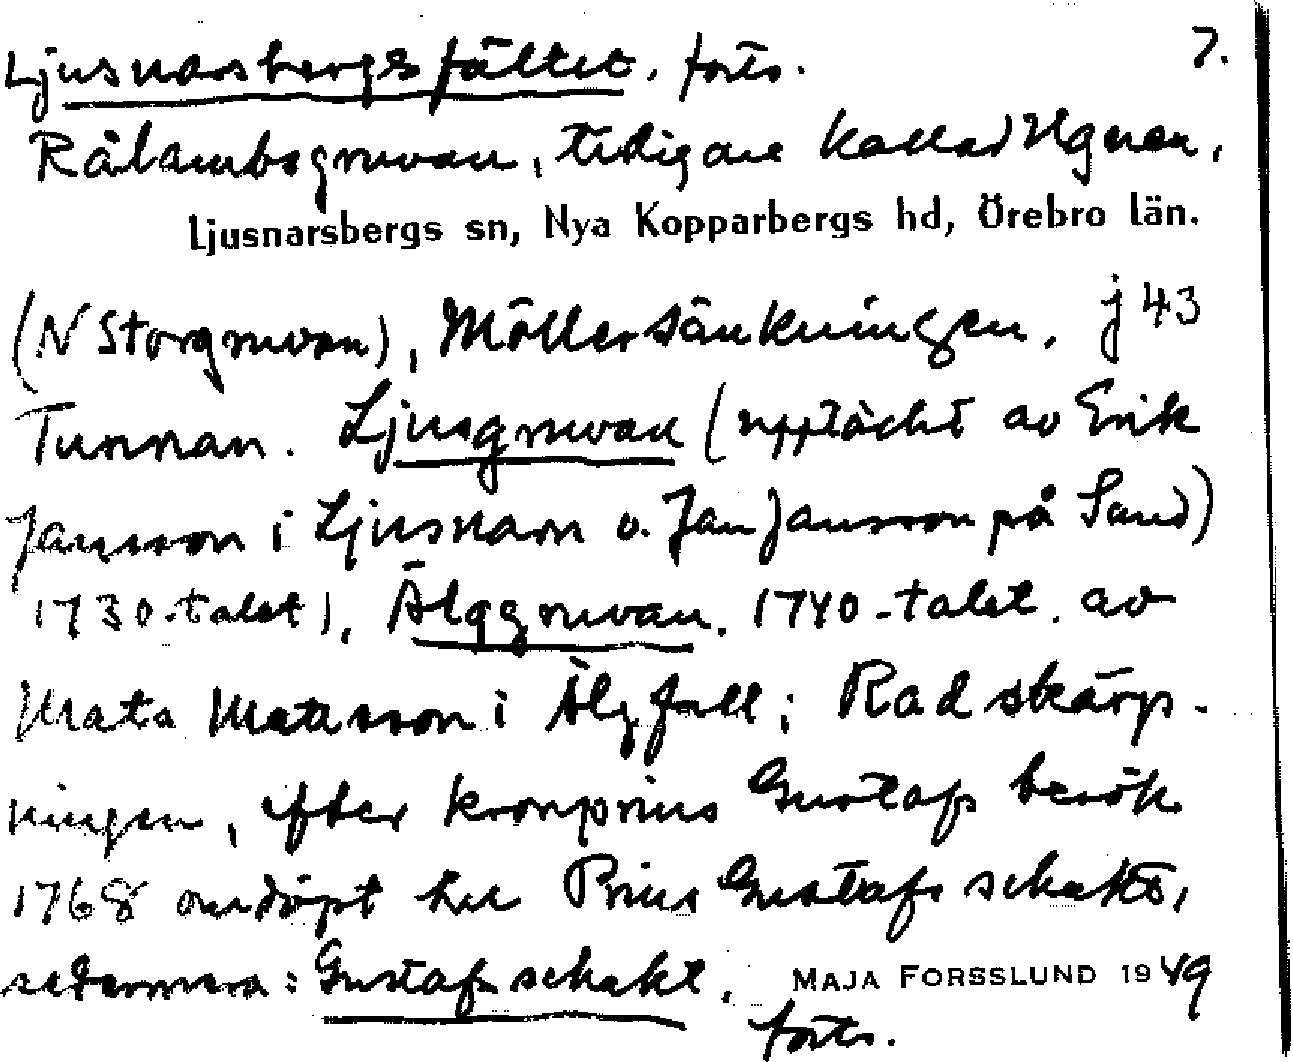 Ljusnarsbergsfältet, forts. 7.
Rålambsgruvan, tidigare kallad Ugnen,
Ljusnarsbergs sn, Nya Kopparbergs hd, Örebro län.
(N Storgruvan), Möllersänkningen. j 43
Tunnan. Ljusgruvan (upptäckt av Erik
Jansson i Ljusnarn o. Jan Jansson på Sand)
1730-talet), Älggruvan. 1740-talet. av
Mats Matsson i Älgfall; Radskärp-
ningen, efter kronprins Gustafs besök
1768 omdöpt till Prins Gustafs schakt,
sedermera: Gustafsschakt. MAJA FORSSLUND 1949
forts.